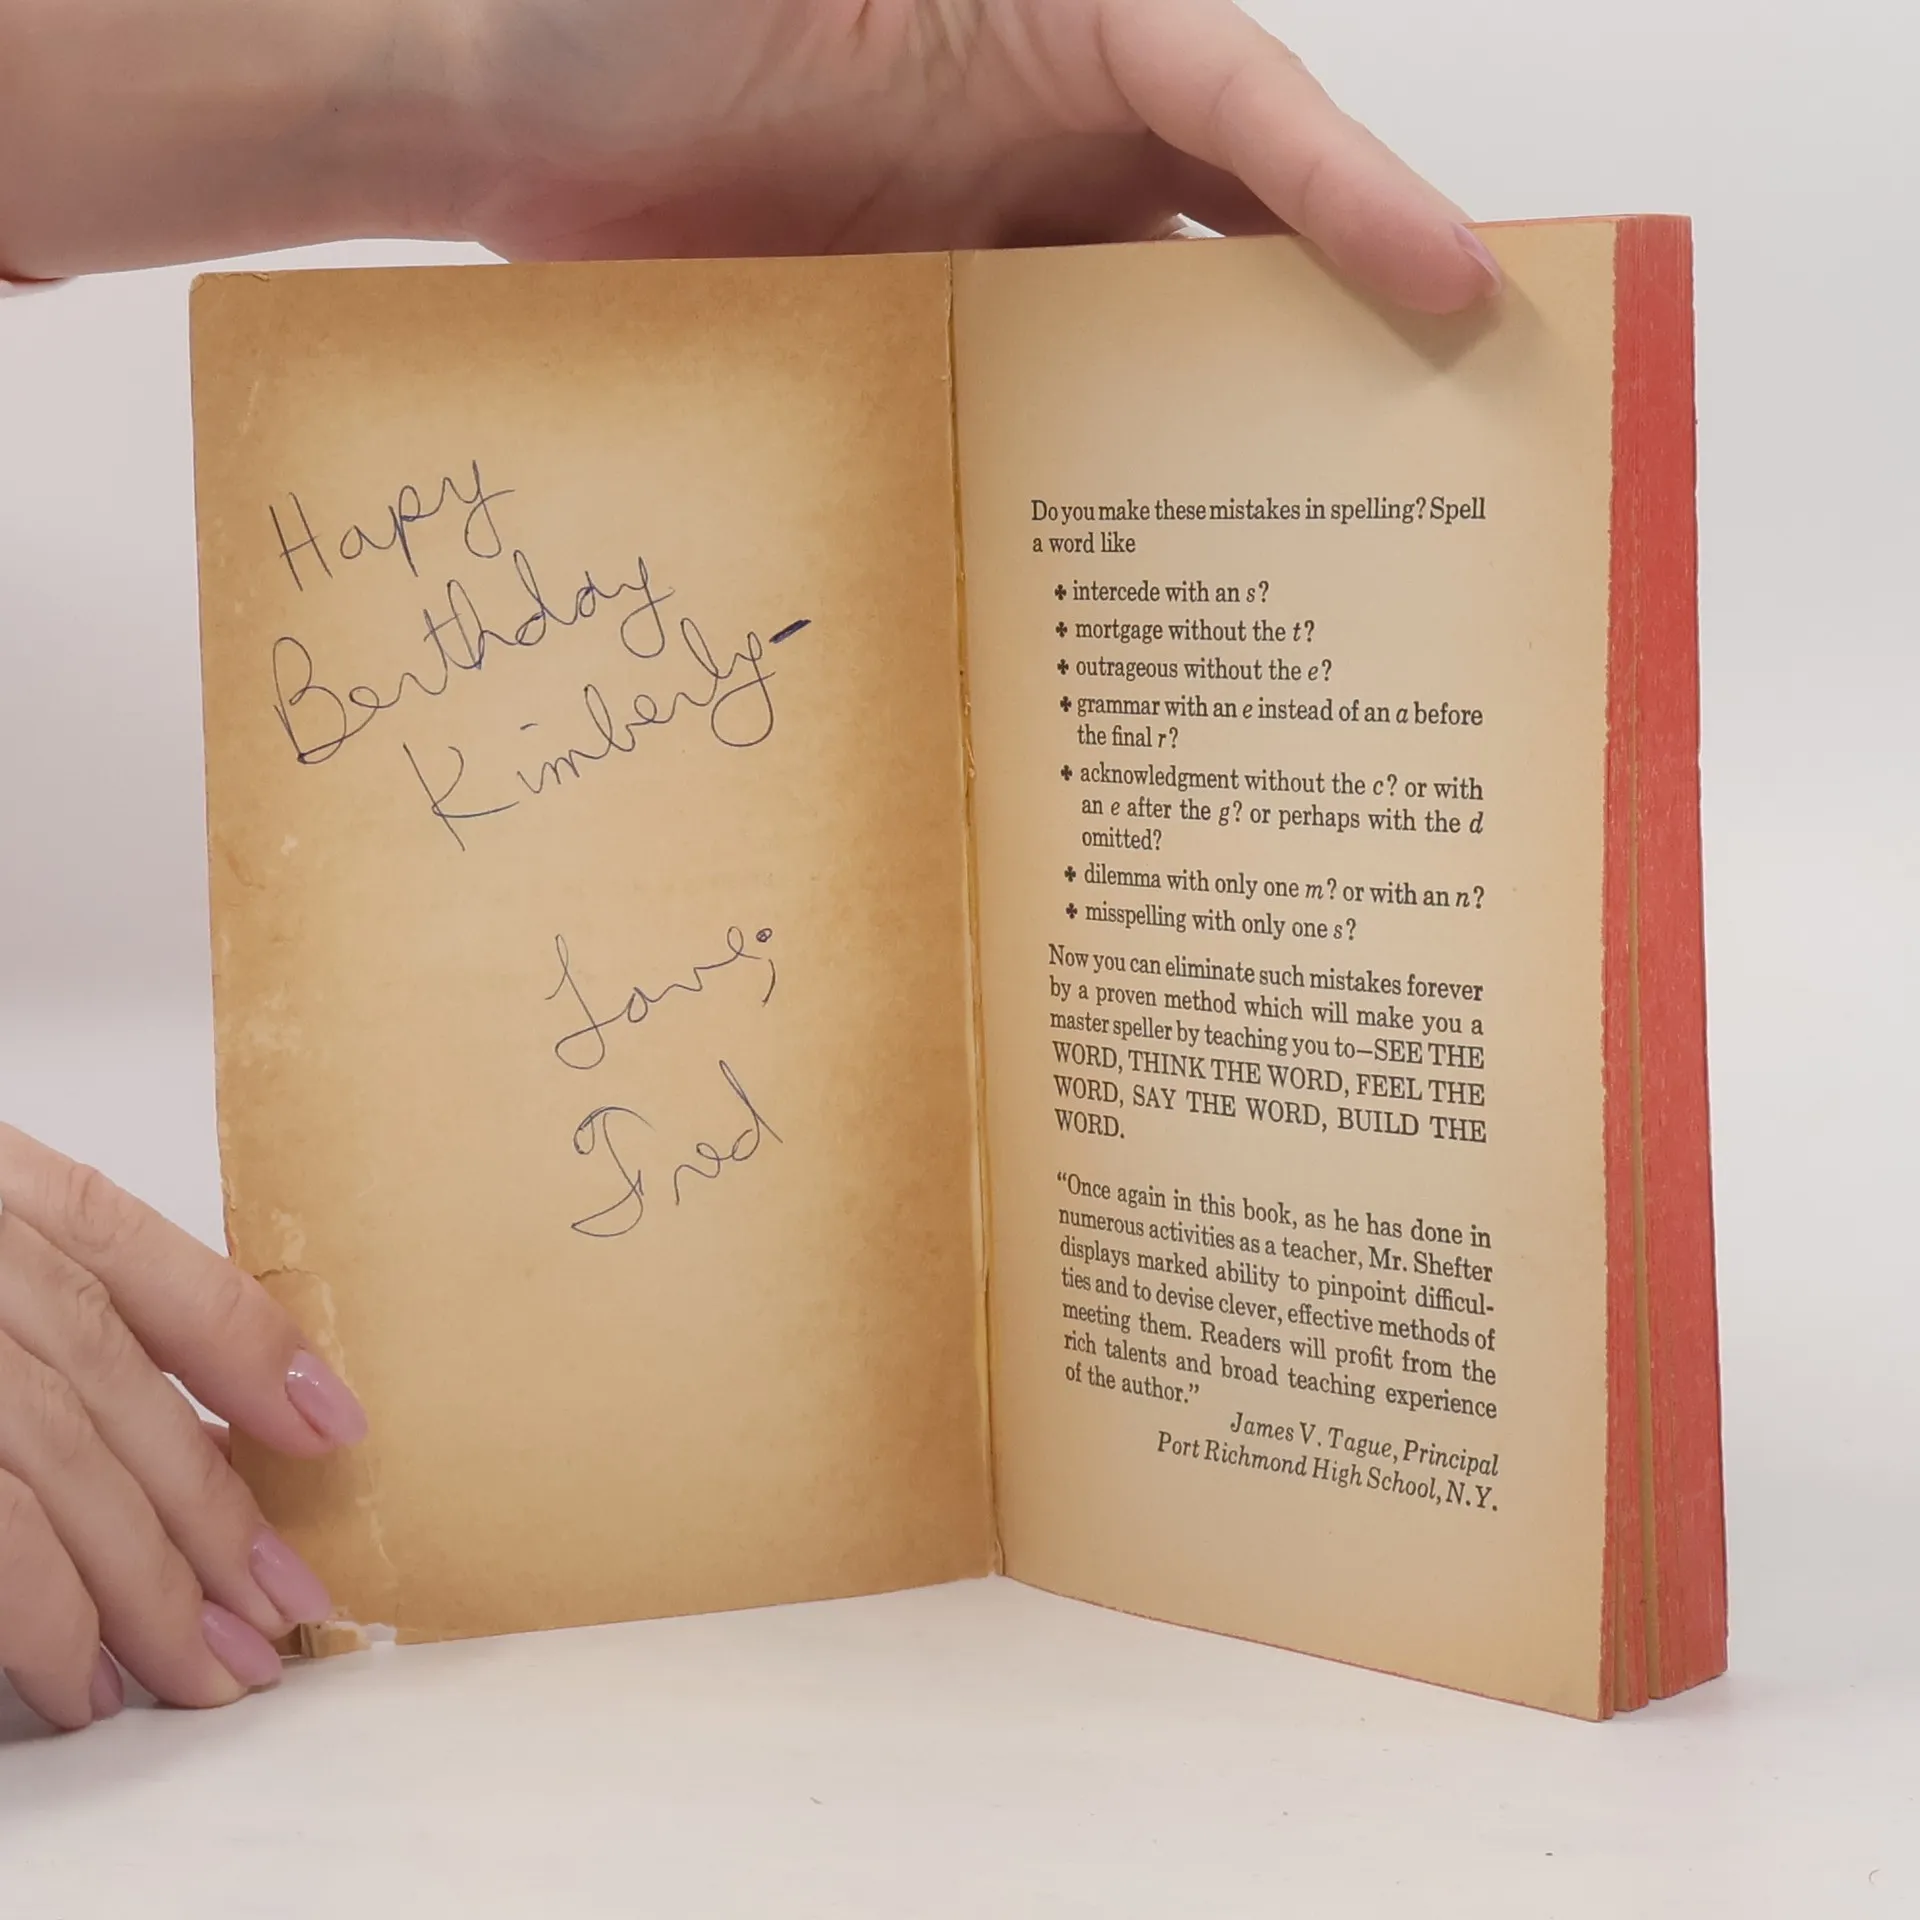 Hapy
Berthday
Kimberly-
Love;
Fred
Do you make these mistakes in spelling? Spell
a word like
✤ intercede with an s?
✤ mortgage without the t?
✤ outrageous without the e?
✤ grammar with an e instead of an a before
the final r?
✤ acknowledgment without the c? or with
an e after the g? or perhaps with the d
omitted?
✤ dilemma with only one m? or with an n?
✤ misspelling with only one s?
Now you can eliminate such mistakes forever
by a proven method which will make you a
master speller by teaching you to—SEE THE
WORD, THINK THE WORD, FEEL THE
WORD, SAY THE WORD, BUILD THE
WORD.
“Once again in this book, as he has done in
numerous activities as a teacher, Mr. Shefter
displays marked ability to pinpoint difficul-
ties and to devise clever, effective methods of
meeting them. Readers will profit from the
rich talents and broad teaching experience
of the author.”
James V. Tague, Principal
Port Richmond High School, N.Y.